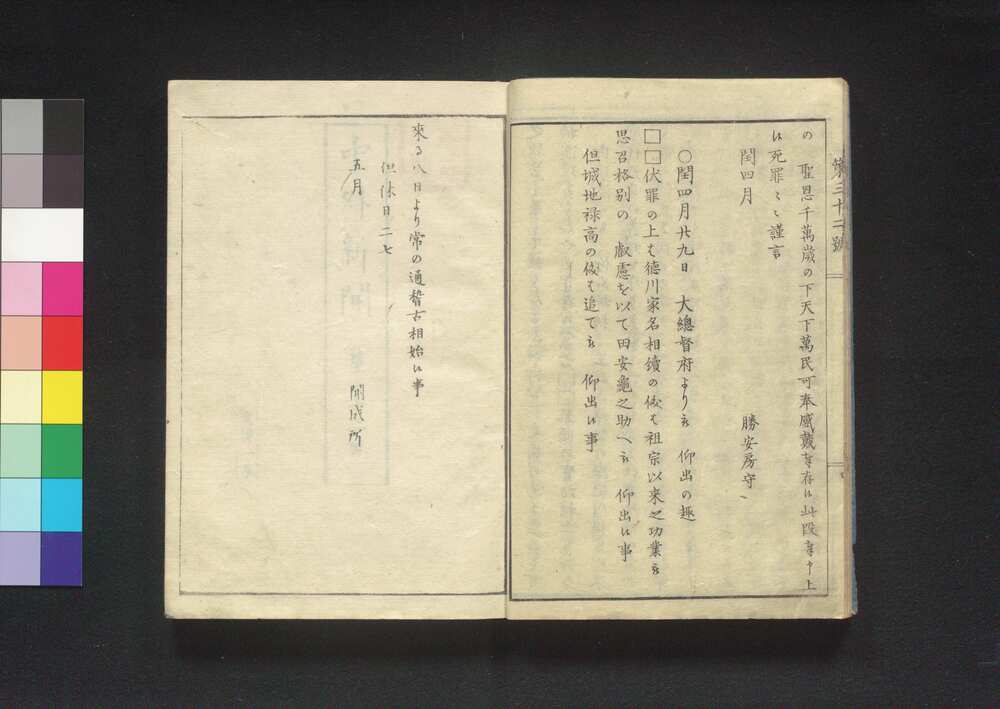 第三十二號
の 聖恩千萬歳の下天下萬民可奉感戴奉存候此段奉申上
候死罪〻謹言
閏四月
勝安房守
〇閏四月廿九日 大總督府より被 仰出の趣
□□伏罪の上は德川家名相續の儀は祖宗以来之功業被
思召格別の 叡慮を以て田安龜之助へ被 仰出候事
但城地禄高の儀は追て被 仰出候事
來る八日より常の通稽古相始候事
但休日二七
五月
開成所